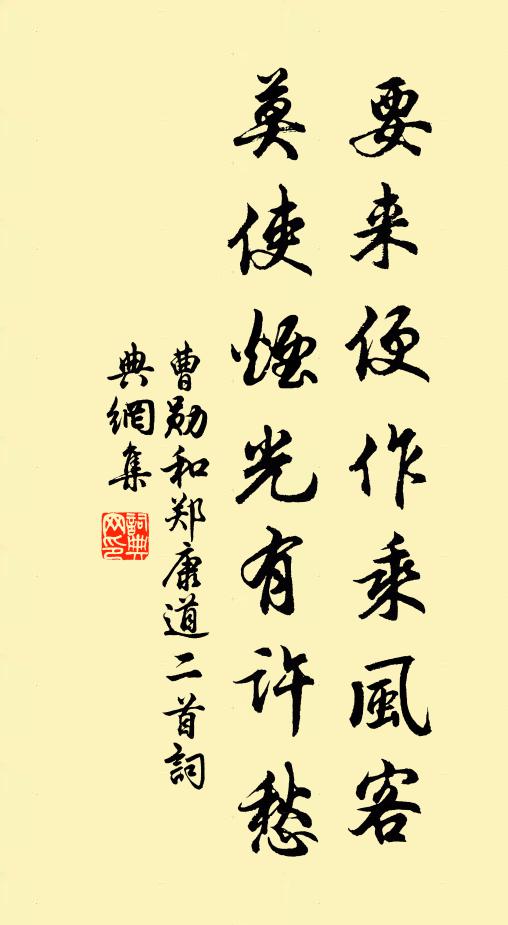 要来便作乘風客
莫使煙光有许愁
曹勋和郑康道二首詞
典網集
詞典
网印